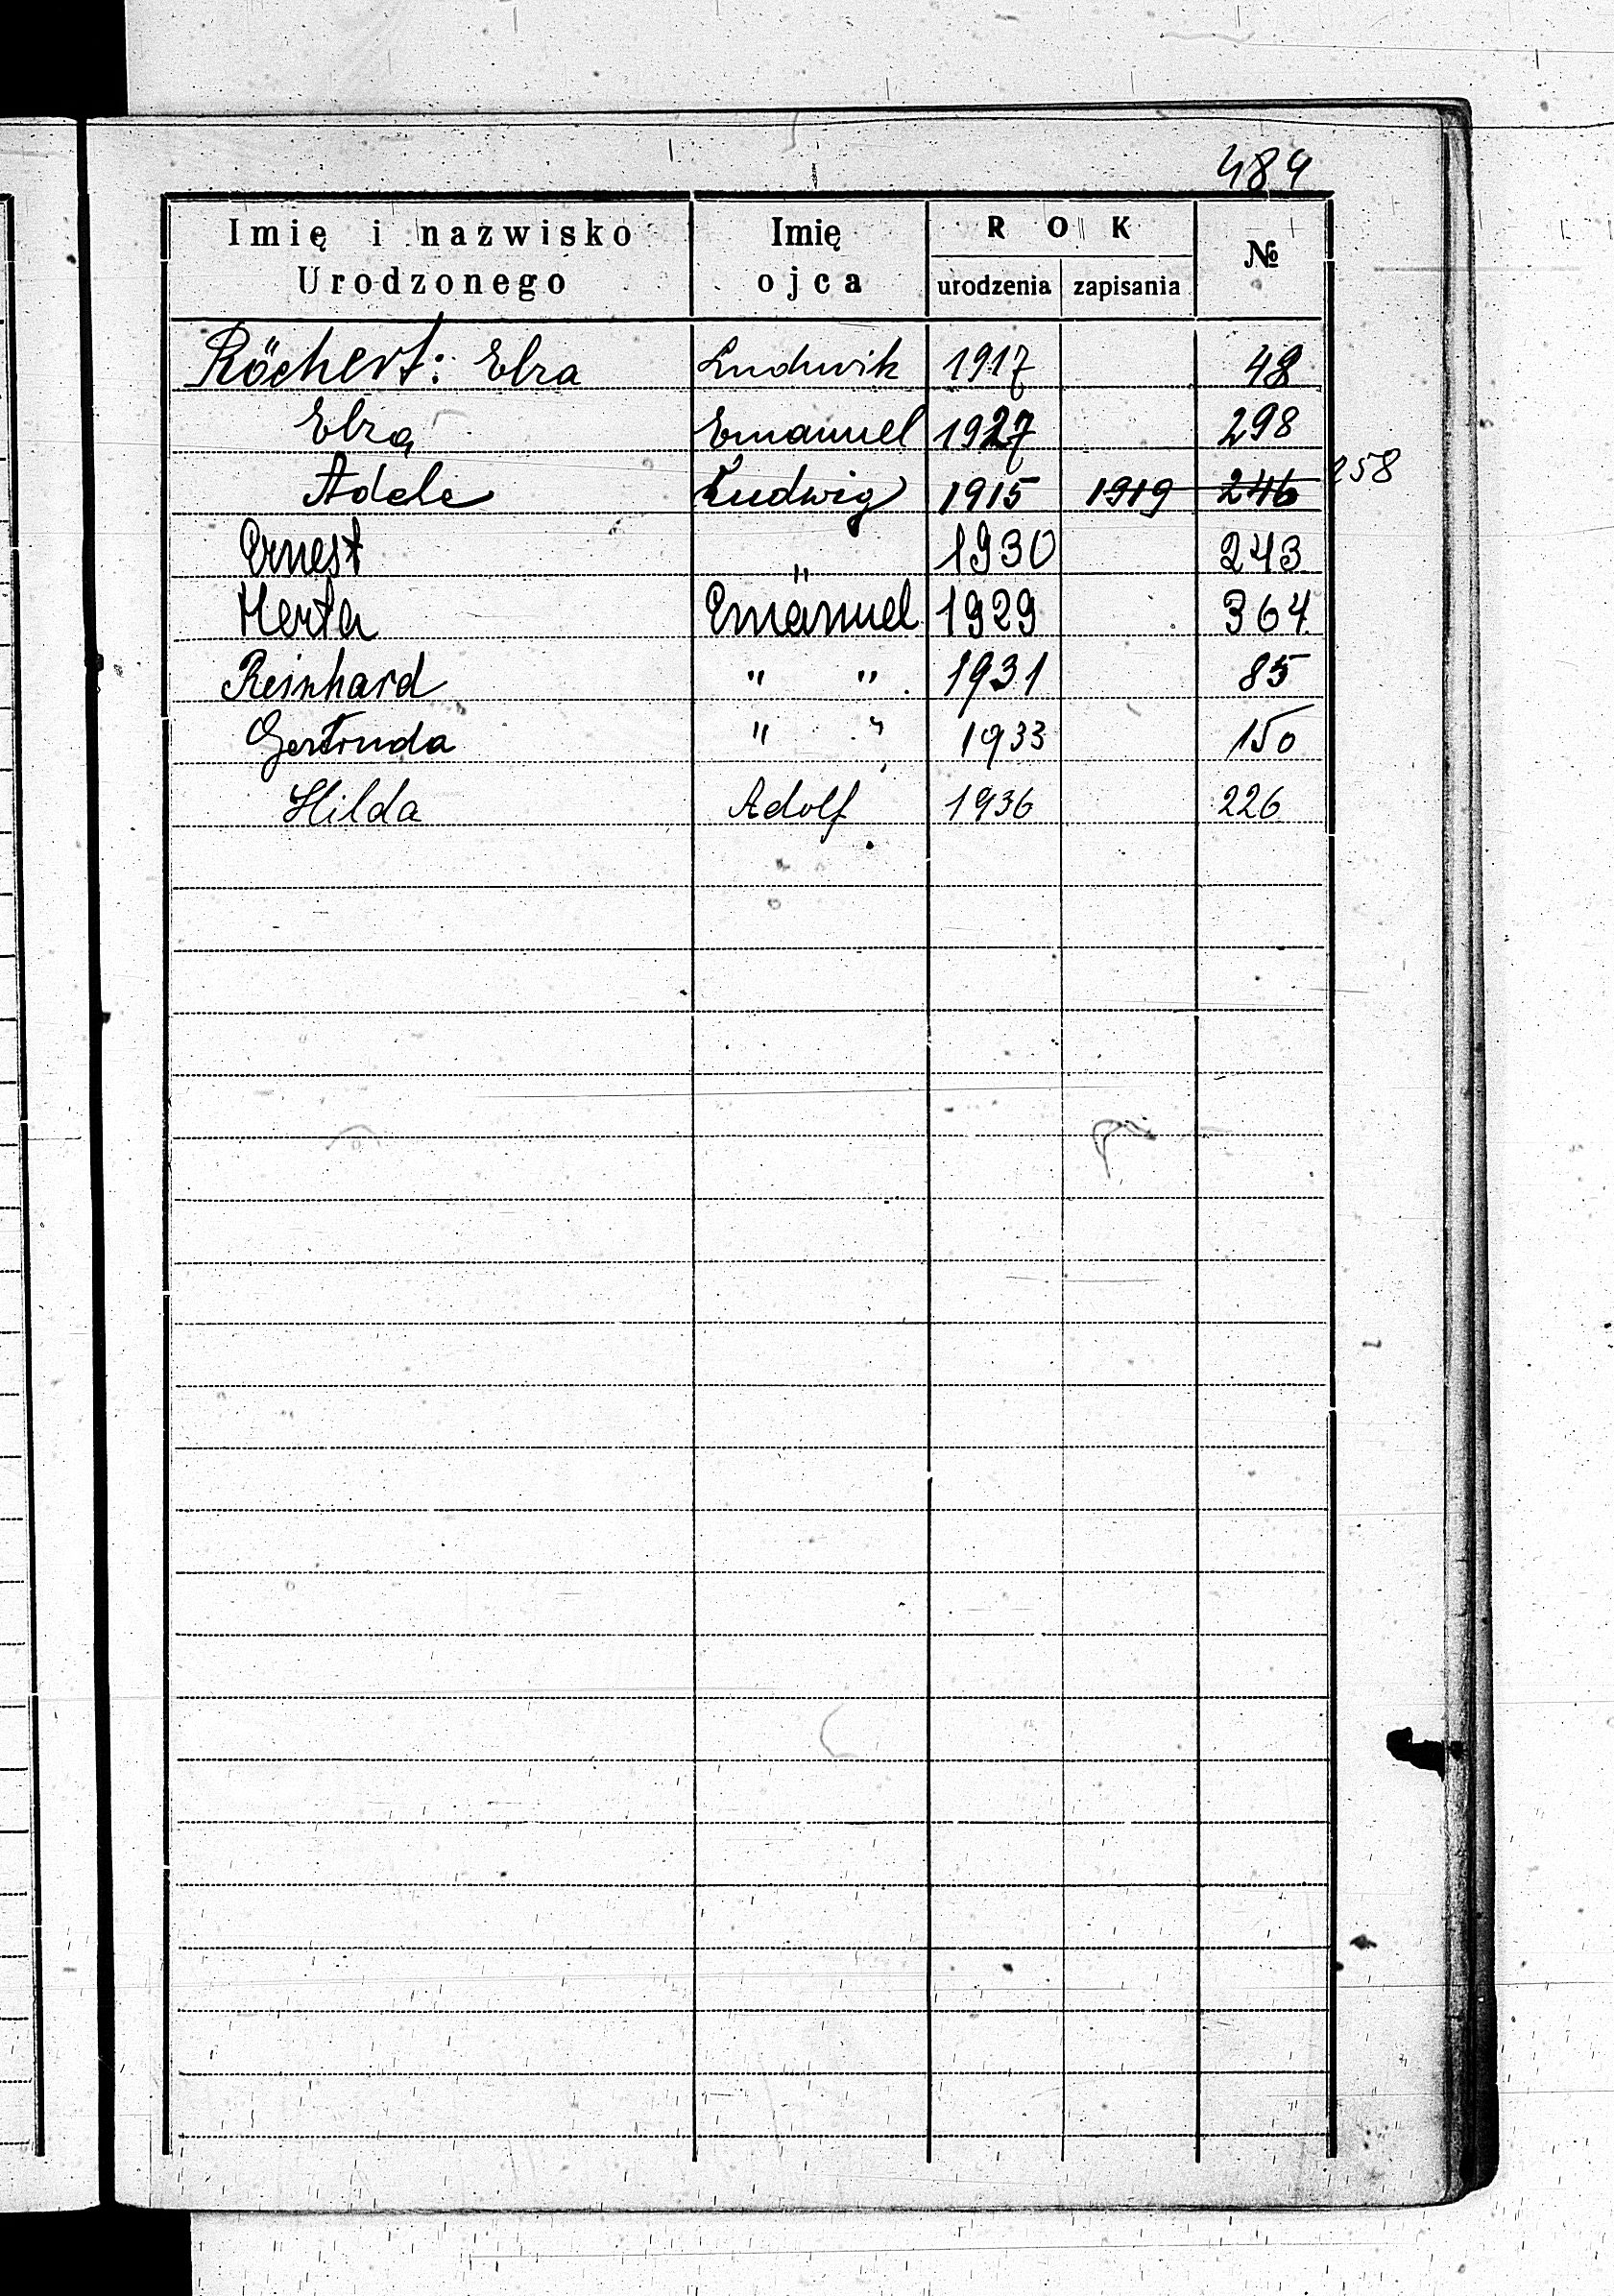 484
Imię i nazwisko Urodzonego Imię ojca ROK urodzenia zapisania №
Röchert: Elza Ludwik 1917 48
Elza Emanuel 1927 298
Adele Ludwig 1915 1919 246 258
Ernest " 1930 243
Herta Emanuel 1929 364
Reinhard " " 1931 85
Gertruda " " 1933 150
Hilda Adolf 1936 226